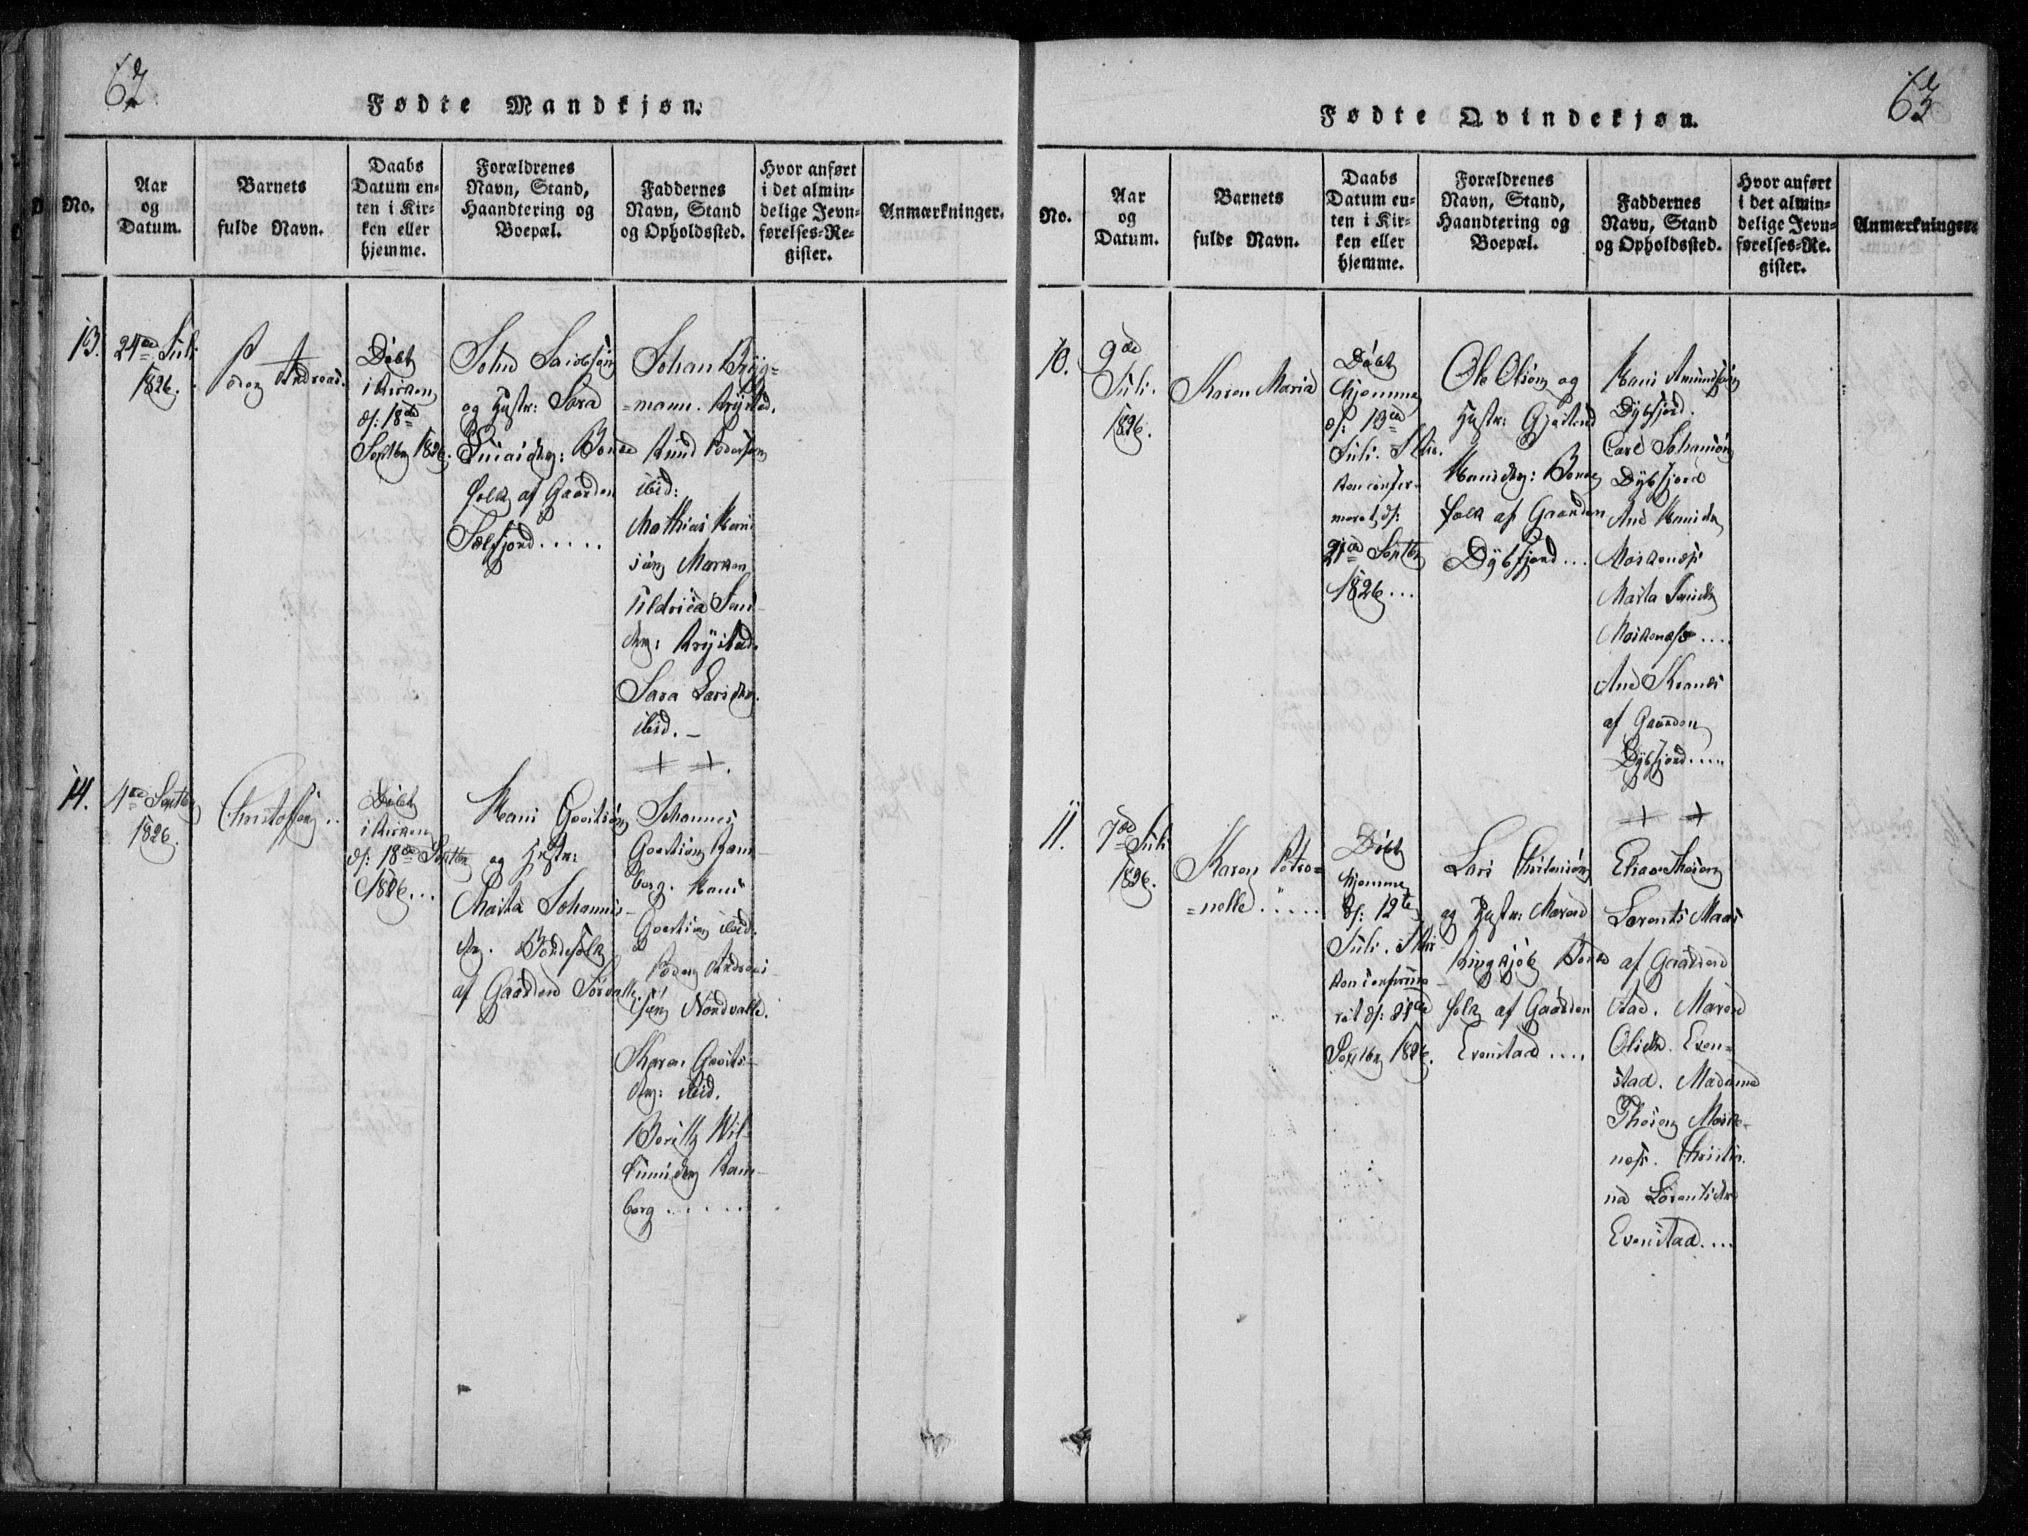 62
Fødte Mandkjøn.
No.
Aar
og
Datum.
Barnets
fulde Navn.
Daabs
Datum en-
ten i Kir-
ken eller
hjemme.
Forældrenes
Navn, Stand,
Haandtering og
Boepæl.
Faddernes
Navn, Stand
og Opholdssted.
Hvor anført
i det almin-
delige Jevn-
førelses-Re-
gister.
Anmærkninger.
13.
24de Juli
1826.
Peder Andreas.
Døbt
i Kirken
d: 18de
Septbr 1826.
John Jacobsøn
og Hustr: Sara
Bonde
folk af Gaarden
Selfjord.....
Johan Bryg=
=mann. Krystad.
Knud Pedersen
ibid:
Mathias Hans
søn Marken
Jens
dtr: Krystad.
Sara Larsdtr.
ibid. –
14.
4de Septbr
1826.
Christoffer..
Døbt
i Kirken
d: 18de Septbr
1826...
Hans Goertsøn
og Hustr:
Marta Johannis-
dtr. Bondefolk
af Gaarden Sørvalle.
Johannes
Goertsøn Ram-
berg. Hans
Goertsøn ibid.
Peder Andreas
søn Nordvalle.
Karen Goerts-
dtr: ibid.
Berith Wil-
lumsdtr Ram-
berg......
63
Fødte Qvindekjøn.
No.
Aar
og
Datum.
Barnets
fulde Navn.
Daabs
Datum en-
ten i Kir-
ken eller
hjemme.
Forældrenes
Navn, Stand,
Haandtering og
Boepæl.
Faddernes
Navn, Stand
og Opholdssted.
Hvor anført
i det almin-
delige Jevn-
førelses-Re-
gister.
Anmærkninger.
10.
9de
Juli.
1826.
Karen Maria
Døbt
hjemme
d: 13de
Juli. I Kir-
ken confir-
meret d:
21de Septbr
1826...
Ole Olsen og
Hustr: Gjertrud
Hansdtr: Bonde
folk af Gaarden
Dybfjord...
Hans Amundsøn
Dybfjord.
Carl Johansøn
Dybfjord
Ane Hansdtr
Moskenæs
Marta Jensdtr
Moskenæs....
Ane
af Gaarden
Dybfjord.....
11.
7de Juli
1826.
Karen Petro=
=nelle.....
Døbt
hjemme
d: 12te
Juli. I Kir-
ken confirme-
ret d: 21de
Septbr 1826.
Lars Christensøn
og Hustr: Maren
Ringkjøb Bonde
folk af Gaarden
Evenstad....
Elias Thesen
Lorents Maas
af Gaarden
stad. Maren
Olsdtr. Even=
stad. Madame
Thesen Moske-
næs. Christia-
na Lorentsdtr
Evenstad....